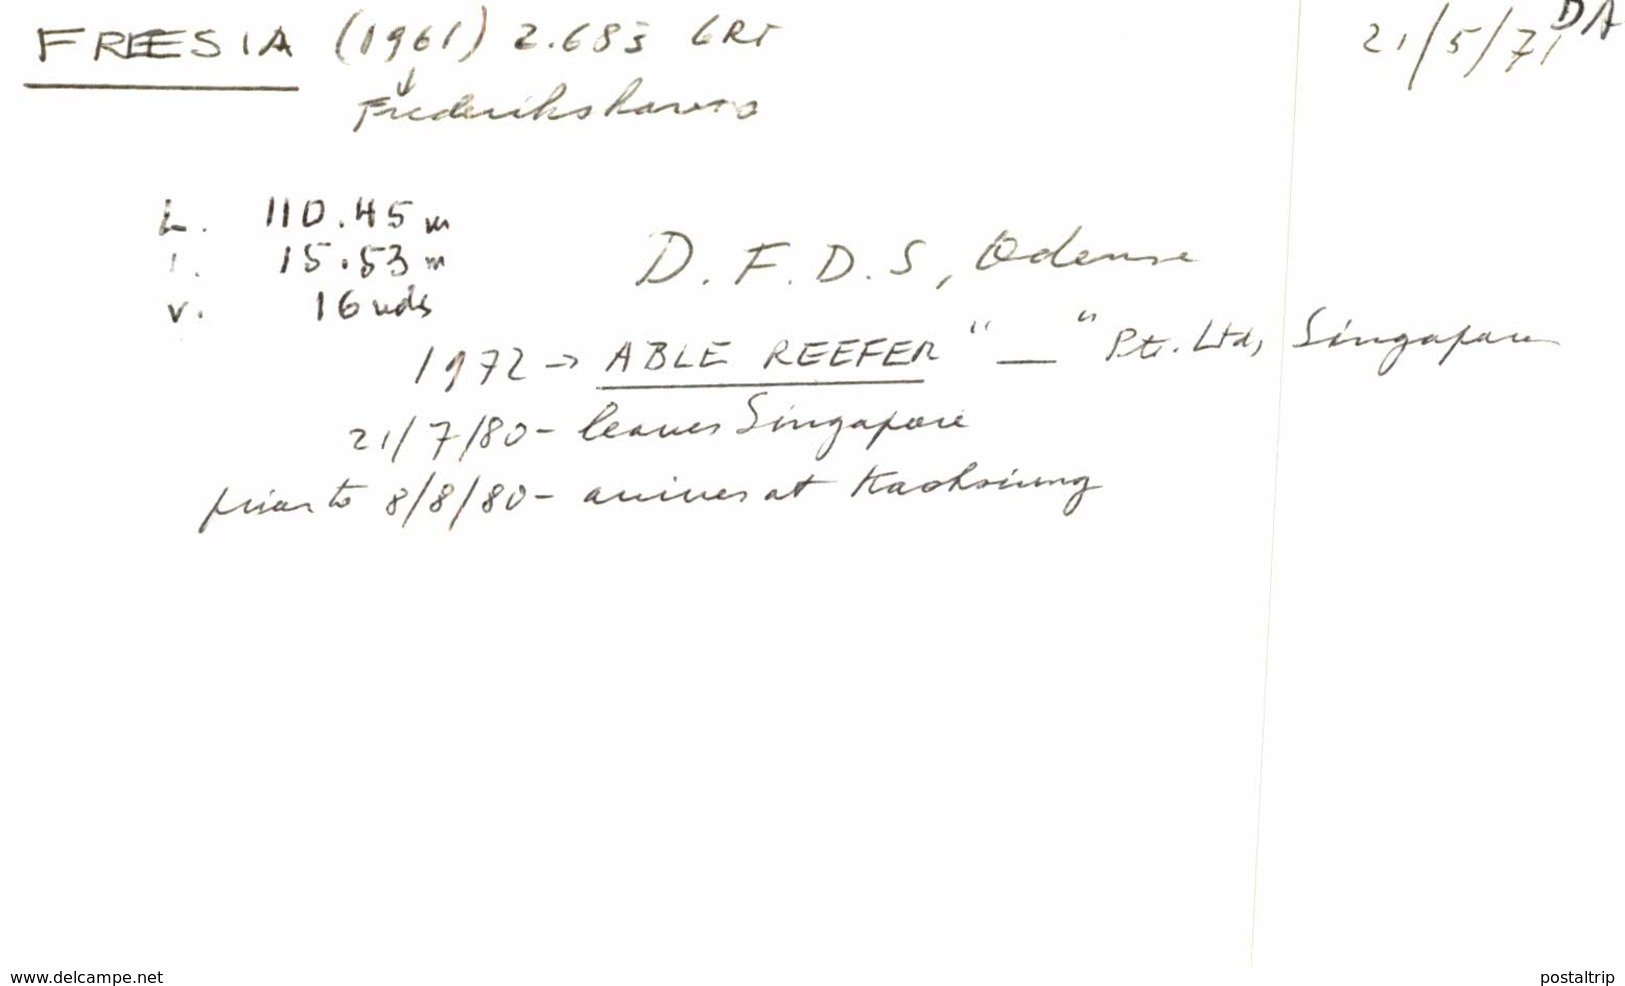 FREESIA (1961) 2.683 GRT 21/5/71 DA
↓
Frederikshavns
L. 110.45 m
l. 15.53 m
D.F.D.S, Odense
v. 16 nds
1972 → ABLE REEFER "—" Pte. Ltd, Singapore
21/7/80 - leaves Singapore
prior to 8/8/80 - arrives at Kaohsiung
www.delcampe.net
postaltrip